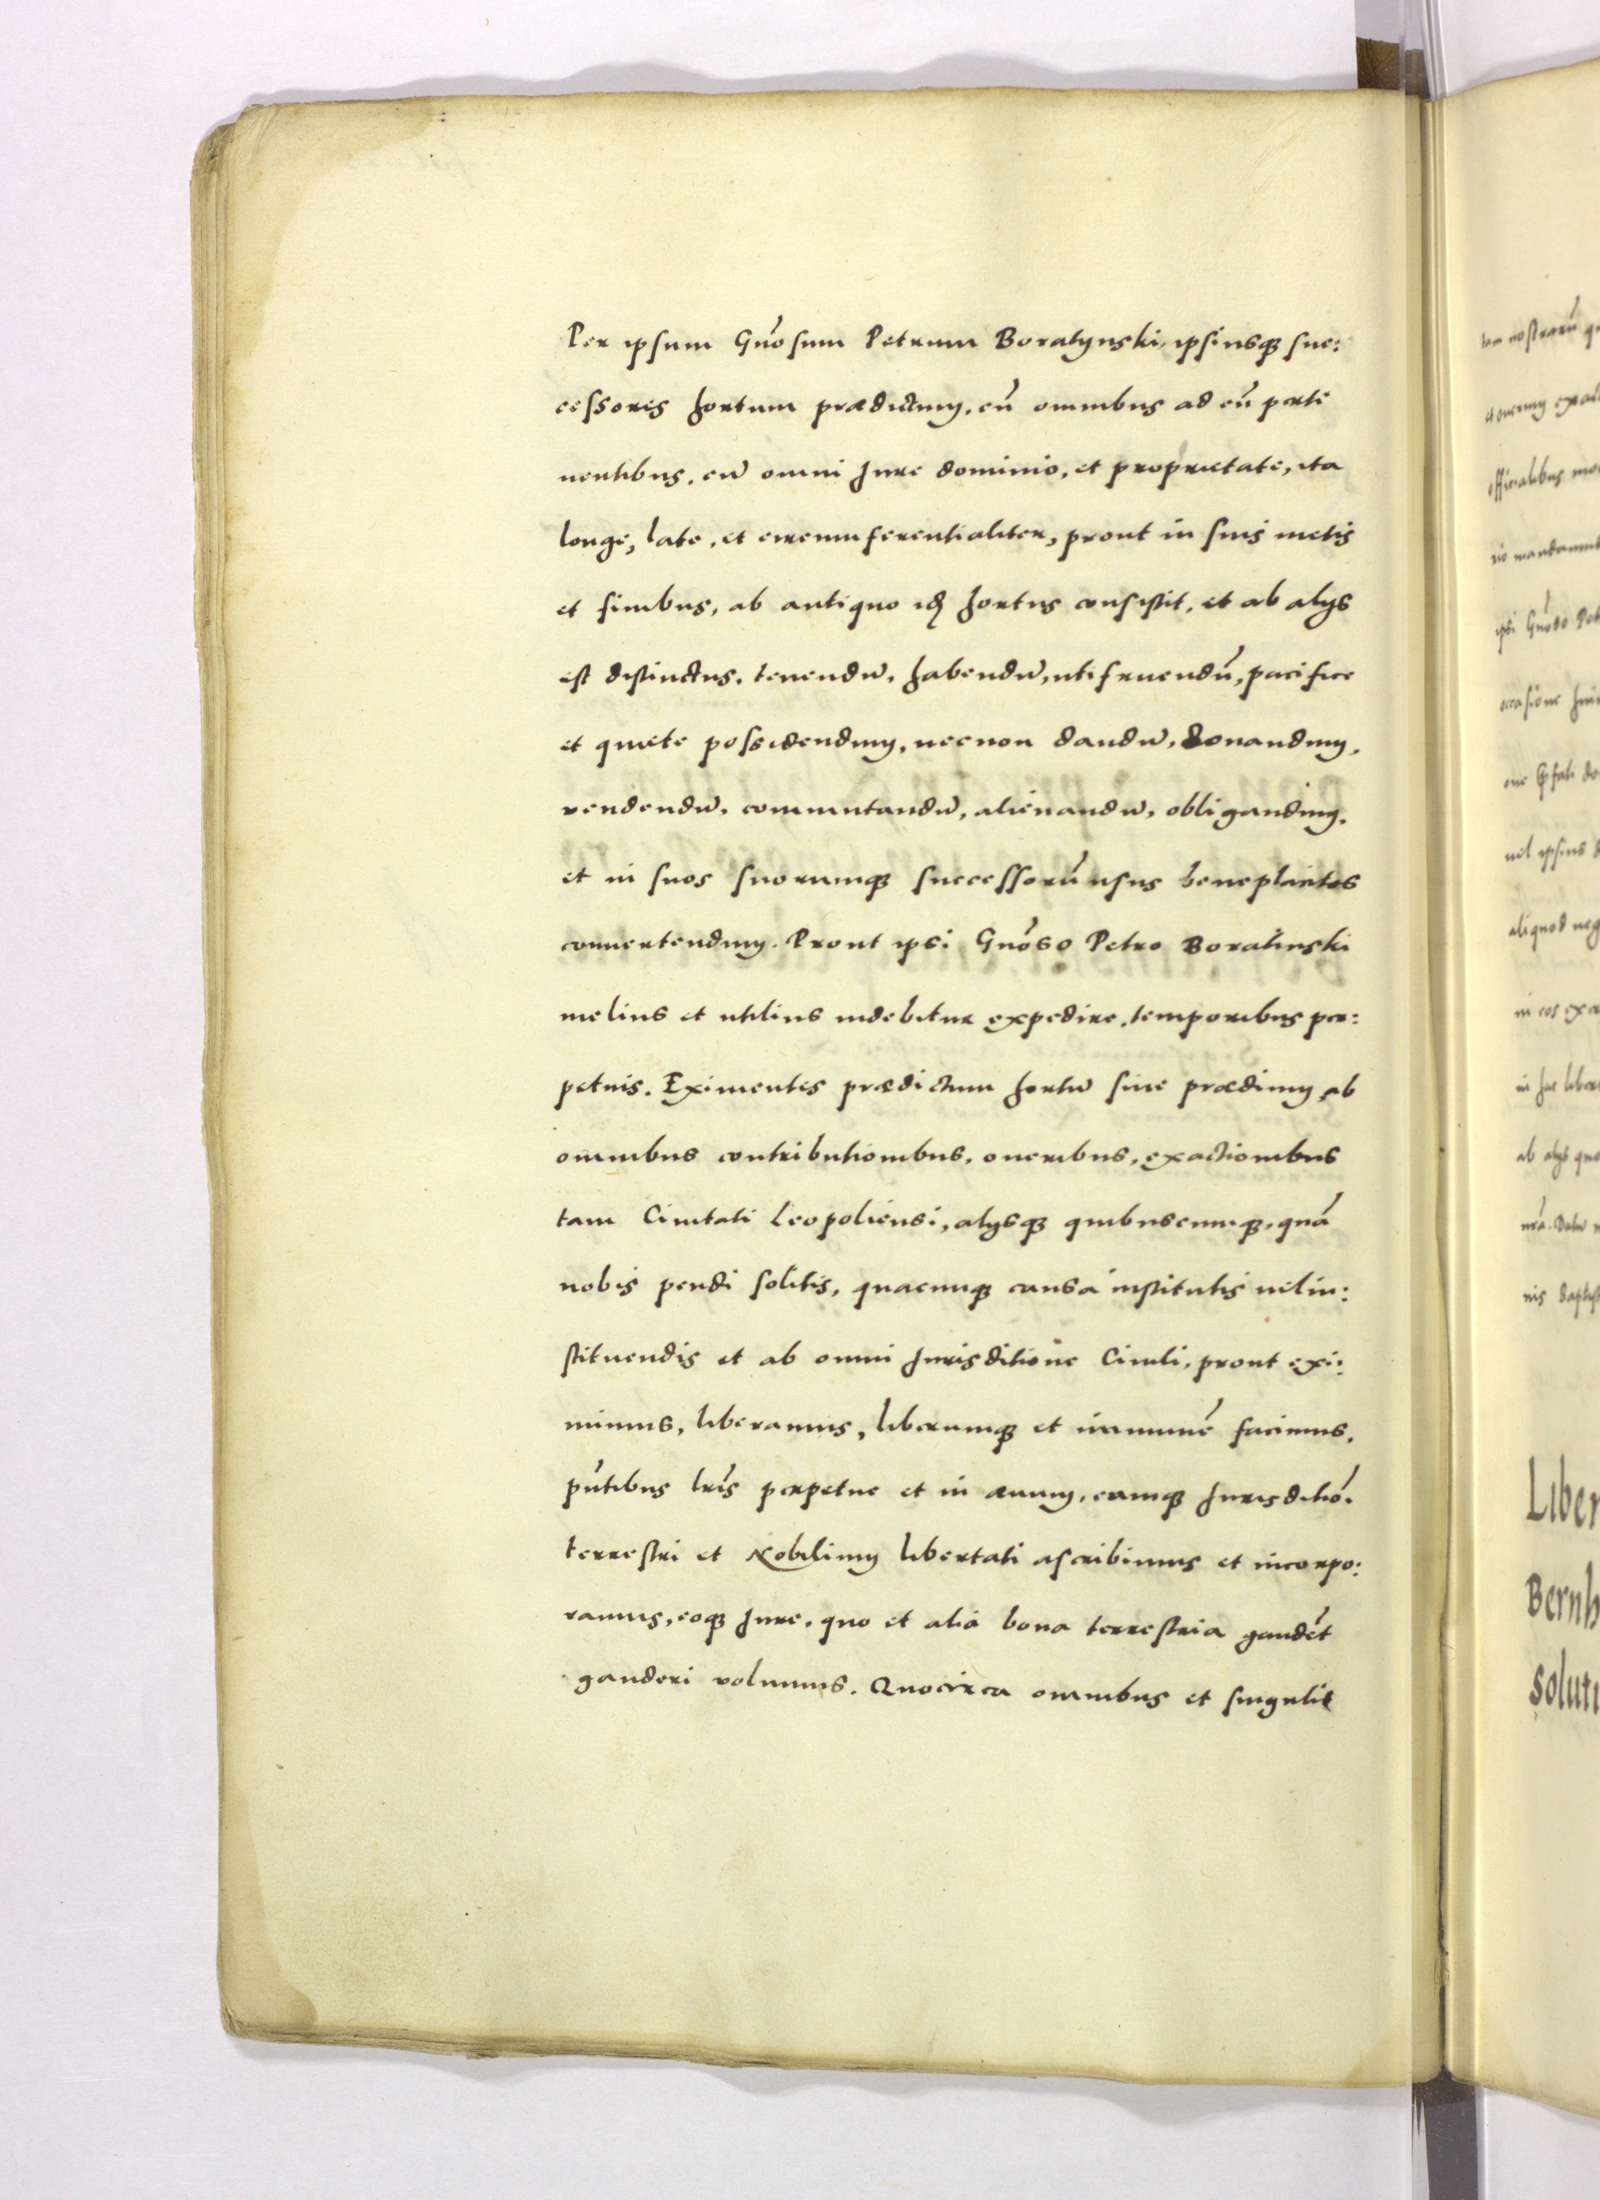 Per ipsum Gnõsum Petrum Boratynski, ipsiusqȝ suc:
cessores hortum prædictum, cũ omnibus ad eũ perti
nentibus, cũ omni Jure dominio, et proprietate, ita
longe, late, et circumferentialiter, prout in suis metis
et finibus, ab antiquo idẽ hortus consistit, et ab alijs
est distinctus, tenendũ, habendũ, utifruendũ, pacifice
et quiete possidendum, necnon dandũ, donandum,
vendendũ, commutandũ, alienandũ, obligandum,
et in suos suorumqȝ successorũ usus beneplacitos
conuertendum. Prout ipsi Gnõso Petro Boratinski
melius et utilius uidebitur expedire, temporibus per:
petuis. Eximentes prædictum hortũ siue prædium, ab
omnibus contributionibus, oneribus, exactionibus
tam Ciuitati Leopoliensi, alijsqȝ quibuscumqȝ, quã
nobis pendi solitis, quacumqȝ causa institutis uel in:
stituendis et ab omni Jurisditione Ciuili, prout exi:
mimus, liberamus, liberumqȝ et immunẽ facimus,
pñtibus lrĩs perpetue et in æuum, eamqȝ Jurisditiõi
terrestri et Nobilium libertati ascribimus et incorpo:
ramus, eoqȝ Jure, quo et alia bona terrestria gaudẽt
gauderi volumus. Quocirca omnibus et singulis
tam nostrarũ
et onerum exac
officialibus
rio mandamus
ipsi Gnõso Pet
occasione
uel ipsius
aliquod neg
in eos exa
in hac liber
ab alijs quo
nrã. Datũ
nis Baptist
Liber
Bernh
Soluti